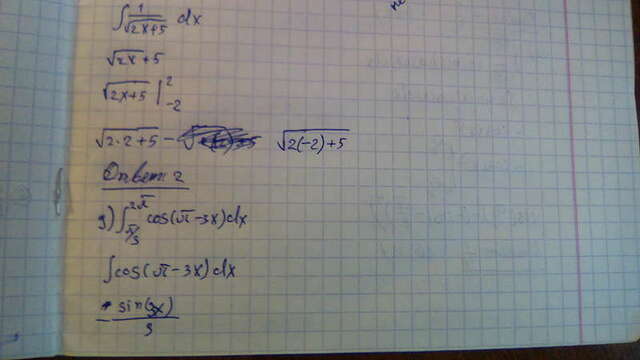 ∫ 1/√(2x+5) dx
√2x + 5
√(2x+5) |²₋₂
√(2·2+5) − √(2(-2)+5)
Ответ 2
g) ∫_{π/3}^{2π} cos(π−3x)dx
∫cos(π−3x)dx
− sin(3x)/3